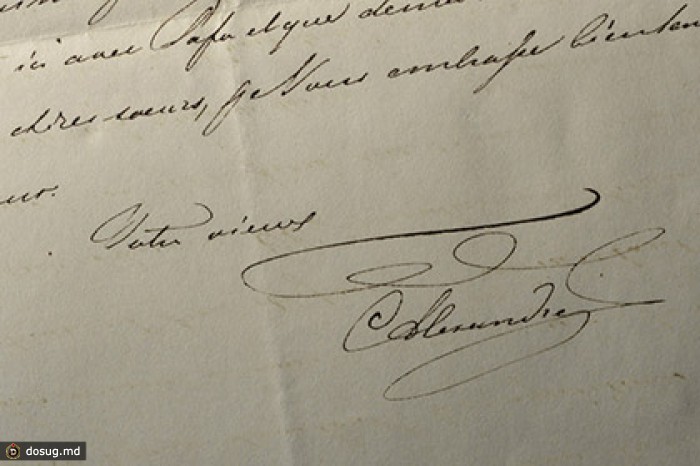 ici avec Papa et que
chères sœurs, je Vous embrasse bien
Votre vieux
Alexandre
dosug.md